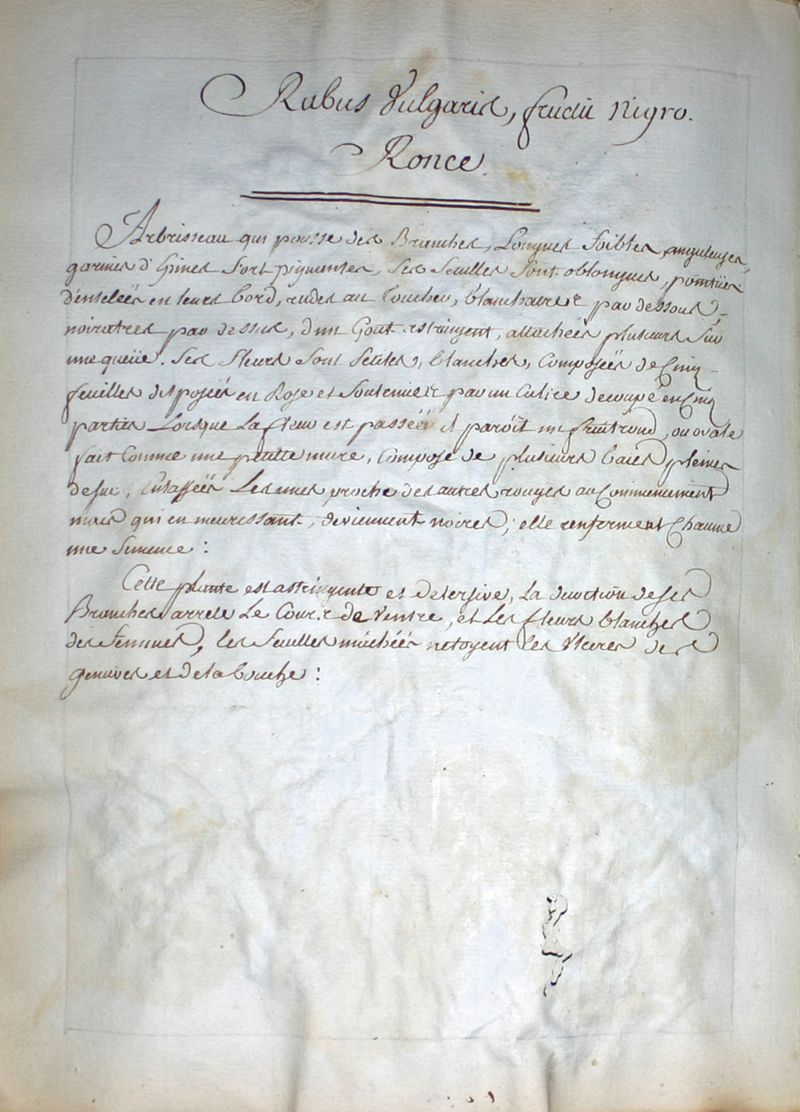 Rubus vulgaris, fructu nigro.
Ronce
Arbrisseau qui pousse des Branches, Longues foibles, anguleuses,
garnies d'Epines fort piquantes, ses feuilles sont oblongues, pointües
dentelées en leurs bord, rudes au toucher, blanchatre par dessous,
noiratres par dessus, d'un Gout astringent, attachées plusieurs sur
une queüe. Ses fleurs sont petites, blanches, composées de Cinq
feuilles disposées en Rose et soutenue par un Calice decoupé en Cinq
parties Lorsque La fleur est passéé il paroît un fruit rond, ou ovale
fait comme une petitte mure, Composé de plusieurs baies pleines
de suc, Entassées Les unes proche des autres rouges au Commencement
mais qui en meurissant, deviennent noires; elle renferment Chacune
une semence :
Cette plante est astringente et detersive, La decoction de ses
Branches arrete Le Cour.s de ventre, et Les fleurs blanches
des femmes, les feuilles machées netoyent les Ulceres des
gencives et de la bouche :